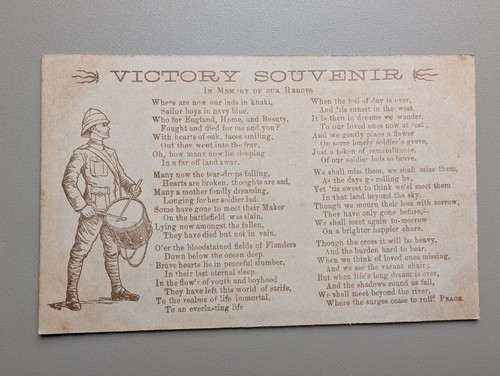 VICTORY SOUVENIR
IN MEMORY OF OUR HEROES
Where are now our lads in khaki,
Sailor boys in navy blue,
Who for England, Home, and Beauty,
Fought and died for me and you?
With hearts of oak, faces smiling,
Out they went into the fray,
Oh, how many now lie sleeping
In a far off land away.
Many now the tear-drops falling,
Hearts are broken, thoughts are sad,
Many a mother fondly dreaming,
Longing for her soldier lad.
Some have gone to meet their Maker
On the battlefield was slain,
Lying now amongst the fallen,
They have died but not in vain.
O'er the bloodstained fields of Flanders
Down below the ocean deep,
Brave hearts lie in peaceful slumber,
In their last eternal sleep.
In the flow'r of youth and boyhood
They have left this world of strife,
To the realms of life immortal,
To an everlasting life
When the toil of day is over,
And 'tis sunset in the west,
It is then in dreams we wander,
To our loved ones now at rest;
And we gently place a flower
On some lonely soldier's grave,
Just a token of remembrance,
Of our soldier lads so brave.
We shall miss them, we shall miss them,
As the days go rolling by,
Yet 'tis sweet to think we'll meet them
In that land beyond the sky.
Though we mourn their loss with sorrow,
They have only gone before,—
We shall meet again to-morrow
On a brighter happier shore.
Though the cross it will be heavy,
And the burden hard to bear,
When we think of loved ones missing,
And we see the vacant chair;
But when life's long dream is over,
And the shadows round us fall,
We shall meet beyond the river,
Where the surges cease to roll! PEACE.